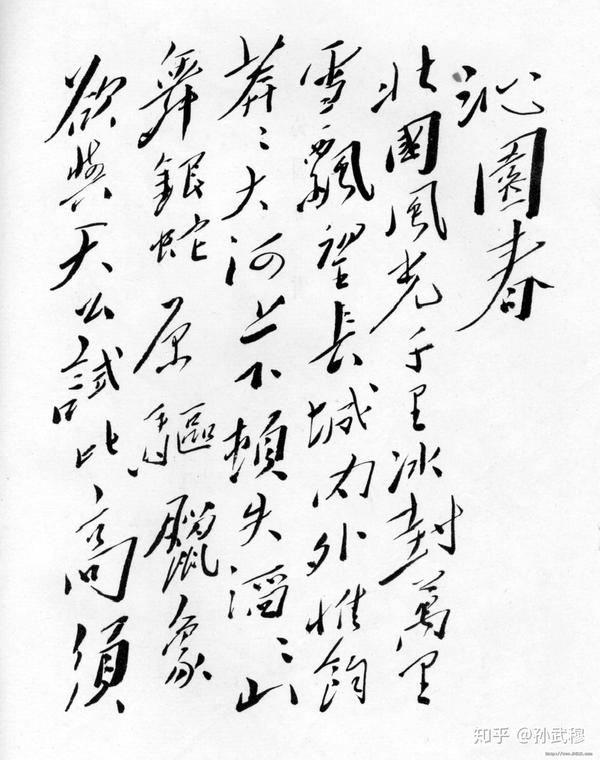 沁園春
北國風光千里冰封萬里
雪飄望長城内外惟餘
莽〻大河上下頓失滔〻山
舞銀蛇原驅臘象
欲與天公試比高須
知乎 @孙武穆